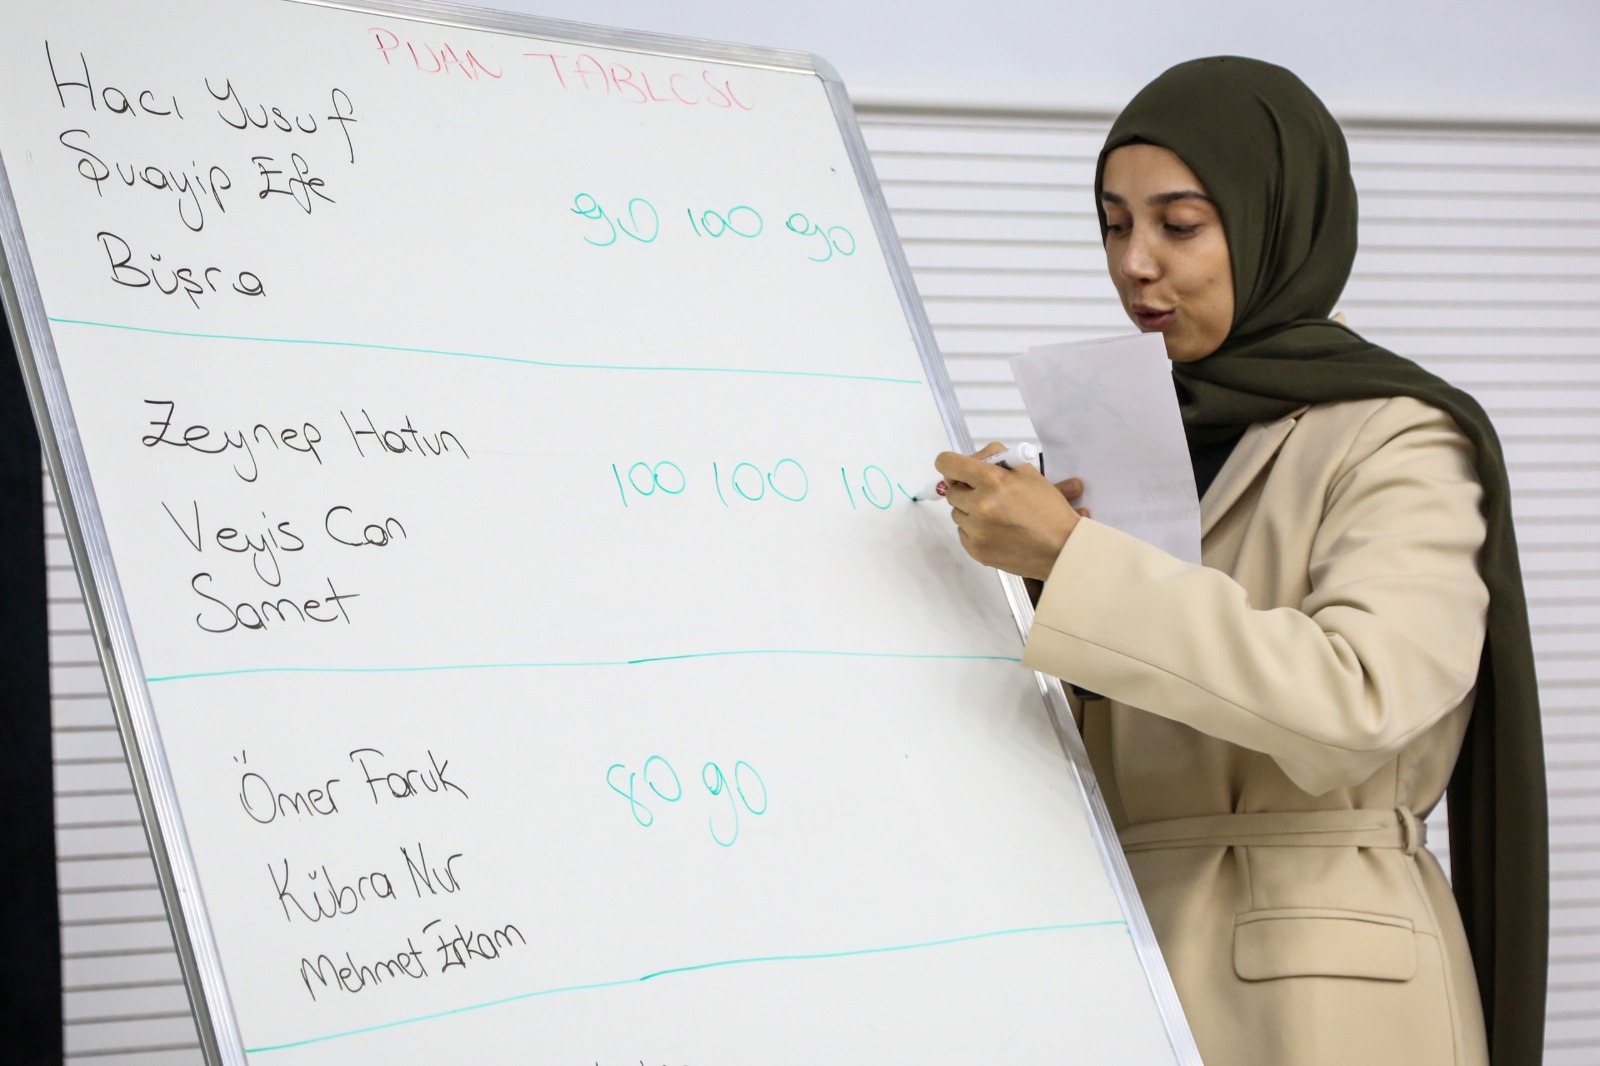 PUAN TABLOSU
Hacı Yusuf
Şuayip Efe
90 100 90
Büşra
Zeynep Hatun
100 100 10
Veyis Can
Samet
Ömer Faruk
80 90
Kübra Nur
Mehmet Erkam